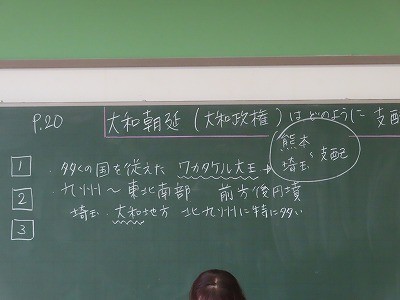 P.20
大和朝廷(大和政権)はどのように支配
1
・多くの国を従えた ワカタケル大王→熊本、埼玉支配
2
・九州〜東北南部 前方後円墳
埼玉・大和地方 北九州に特に多い
3